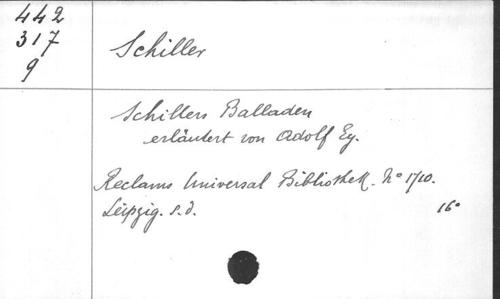 442
317
9
Schiller
Schillers Balladen
erläutert von Adolf Ey.
Reclams Universal Bibliothek. No 1710.
Leipzig. s.d.
16°